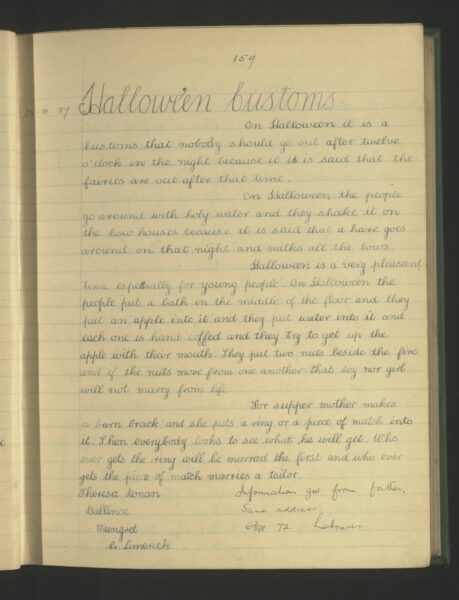 159
Hallowe'en Customs
On Halloween it is a
customs that nobody should go out after twelve
o'clock in the night because it is is said that the
fairies are out after that time.
On Halloween the people
go around with holy water and they shake it on
the cow houses because it is said that a hare goes
around on that night and milks all the cows.
Halloween is a very pleasant
time especially for young people. On Halloween the
people put a bath in the middle of the floor and they
put an apple into it and they put water into it and
each one is hand coffed and they try to get up the
apple with their mouth. They put two nuts beside the fire
and if the nuts move from one another that boy nor girl
will not marry from life
For supper mother makes
a barn brack and she puts a ring or a piece of match into
it. Then everybody looks to see what he will get. Who
ever gets the ring will be married the first and who ever
gets the piece of match marries a tailor.
Theresa Information got from father.
Same address.
Mungret Age 72 Labourer
Co. Limerick